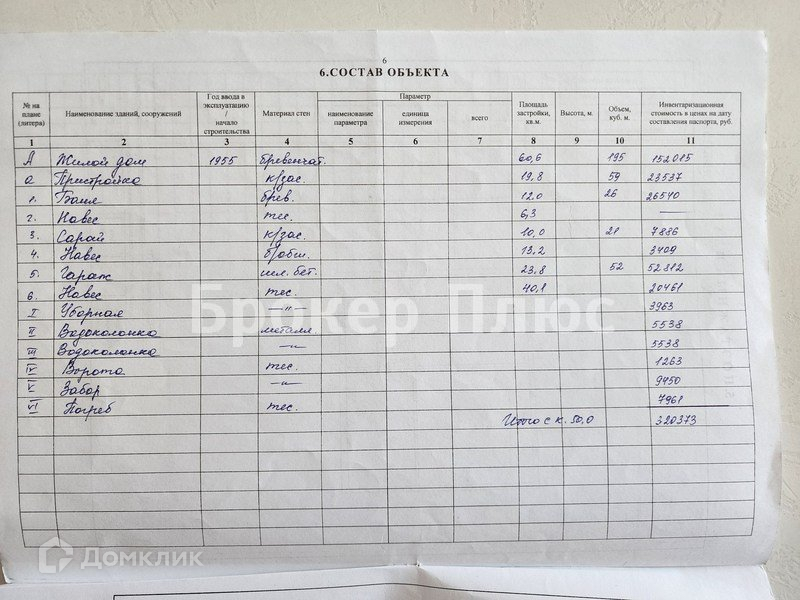 6
6.СОСТАВ ОБЪЕКТА
№ на плане (литера) Наименование зданий, сооружений Год ввода в эксплуатацию / начало строительства Материал стен Параметр наименование параметра единица измерения всего Площадь застройки, кв.м. Высота, м. Объем, куб. м. Инвентаризационная стоимость в ценах на дату составления паспорта, руб.
1 2 3 4 5 6 7 8 9 10 11
А Жилой дом 1955 бревенчат. 60,6 195 152015
а Пристройка к/зас. 19,8 59 23537
1. Баня брев. 12,0 26 26540
2. Навес тес. 6,3 —
3. Сарай к/зас. 10,0 21 7886
4. Навес 13,2 3409
5. Гараж шл. бет. 23,8 52 52812
6. Навес тес. 40,1 20461
I Уборная —"— 3963
II Водоколонка металл 5538
III Водоколонка —"— 5538
IV Ворота тес. 1263
V Забор —"— 9450
VI Погреб тес. 7961
Итого с к. 50,0 320373
Брокер Плюс
Домклик